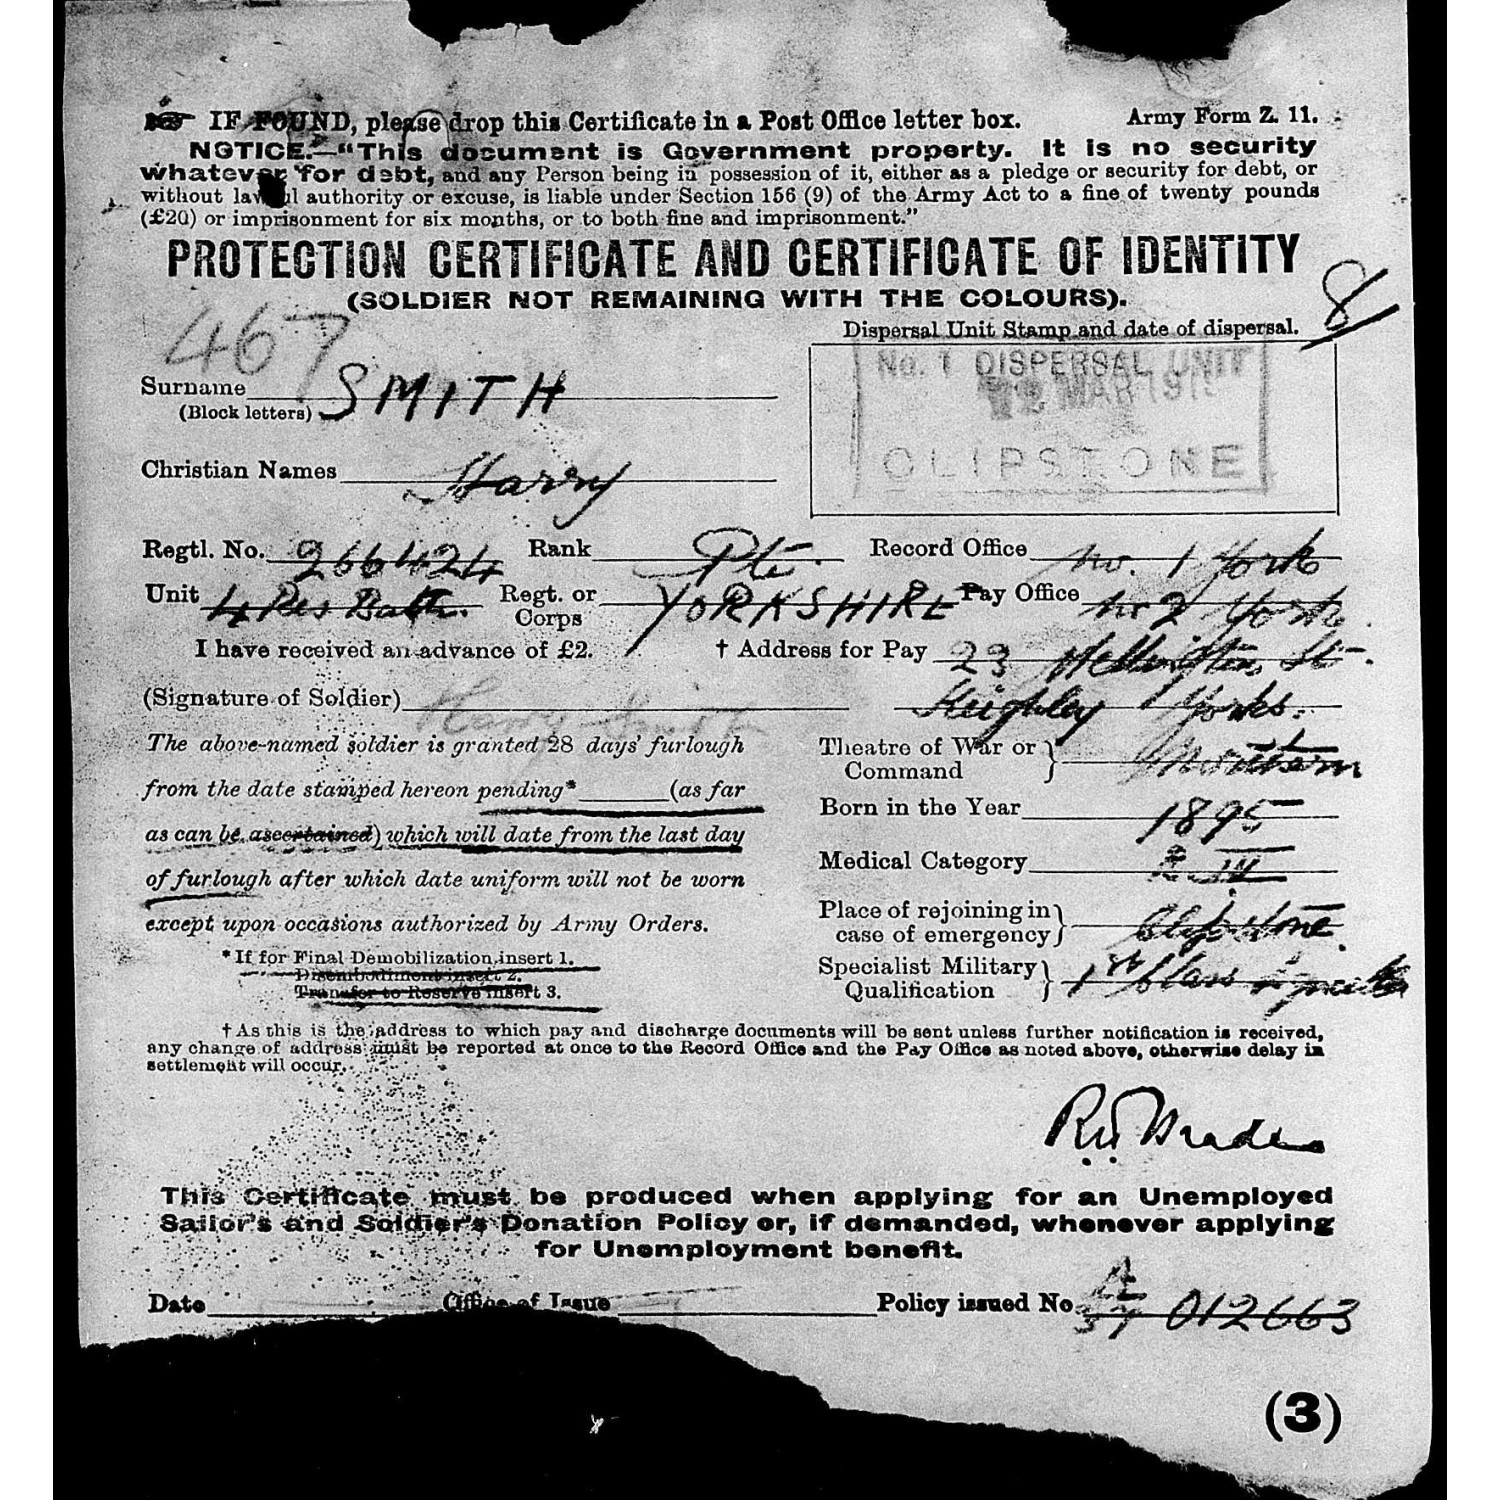 IF FOUND, please drop this Certificate in a Post Office letter box. Army Form Z. 11.
NOTICE.—"This document is Government property. It is no security
whatever for debt, and any Person being in possession of it, either as a pledge or security for debt, or
without lawful authority or excuse, is liable under Section 156 (9) of the Army Act to a fine of twenty pounds
(£20) or imprisonment for six months, or to both fine and imprisonment."
PROTECTION CERTIFICATE AND CERTIFICATE OF IDENTITY
(SOLDIER NOT REMAINING WITH THE COLOURS).
467
8/
Dispersal Unit Stamp and date of dispersal.
No. 1 DISPERSAL UNIT
12 MAR 191
CLIPSTONE
Surname SMITH
(Block letters)
Christian Names Harry
Regtl. No. 266424 Rank Pte. Record Office No. 1 York
Unit 4 Res Battn. Regt. or Corps YORKSHIRE Pay Office No 2 York.
I have received an advance of £2. † Address for Pay 23 Wellington St.
(Signature of Soldier) Harry Smith Keighley Yorks.
The above-named soldier is granted 28 days' furlough
from the date stamped hereon pending* (as far
as can be ascertained) which will date from the last day
of furlough after which date uniform will not be worn
except upon occasions authorized by Army Orders.
* If for Final Demobilization insert 1.
Disembodiment insert 2.
Transfer to Reserve insert 3.
Theatre of War or Command Northern
Born in the Year 1895
Medical Category
Place of rejoining in case of emergency Clipstone.
Specialist Military Qualification 1st Class Signaller
† As this is the address to which pay and discharge documents will be sent unless further notification is received,
any change of address must be reported at once to the Record Office and the Pay Office as noted above, otherwise delay in
settlement will occur.
This Certificate must be produced when applying for an Unemployed
Sailor's and Soldier's Donation Policy or, if demanded, whenever applying
for Unemployment benefit.
Date Office of Issue Policy issued No. A/37 012663
(3)